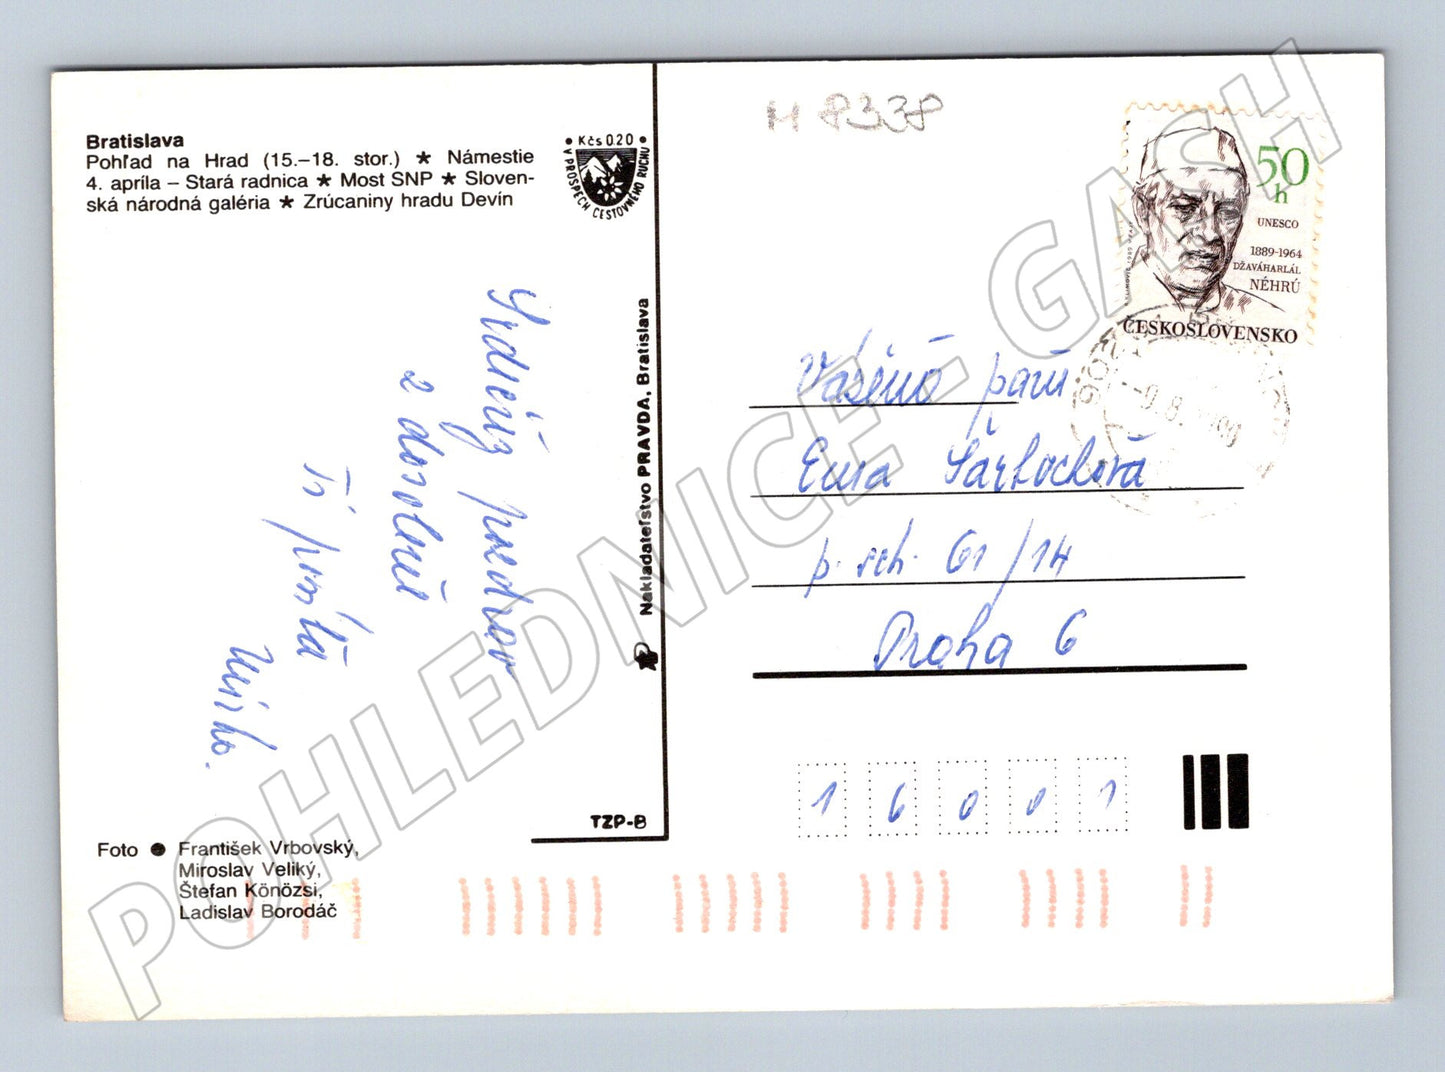 Bratislava
Pohľad na Hrad (15.–18. stor.) ★ Námestie
4. apríla – Stará radnica ★ Most SNP ★ Sloven-
ská národná galéria ★ Zrúcaniny hradu Devín
• Kčs 0.20 •
V PROSPECH CESTOVNÉHO RUCHU
Srdečný pozdrav
z dovolené
Ti posílá
Mirka.
Nakladateľstvo PRAVDA, Bratislava
TZP-B
Foto ● František Vrbovský,
Miroslav Veliký,
Štefan Könözsi,
Ladislav Borodáč
M 8338
50
h
UNESCO
1889-1964
DŽAVÁHARLÁL
NÉHRÚ
ČESKOSLOVENSKO
Vážená paní
Ema
p. sch. 61/14
Praha 6
1 6 0 0 1
POHLEDNICE - GASH